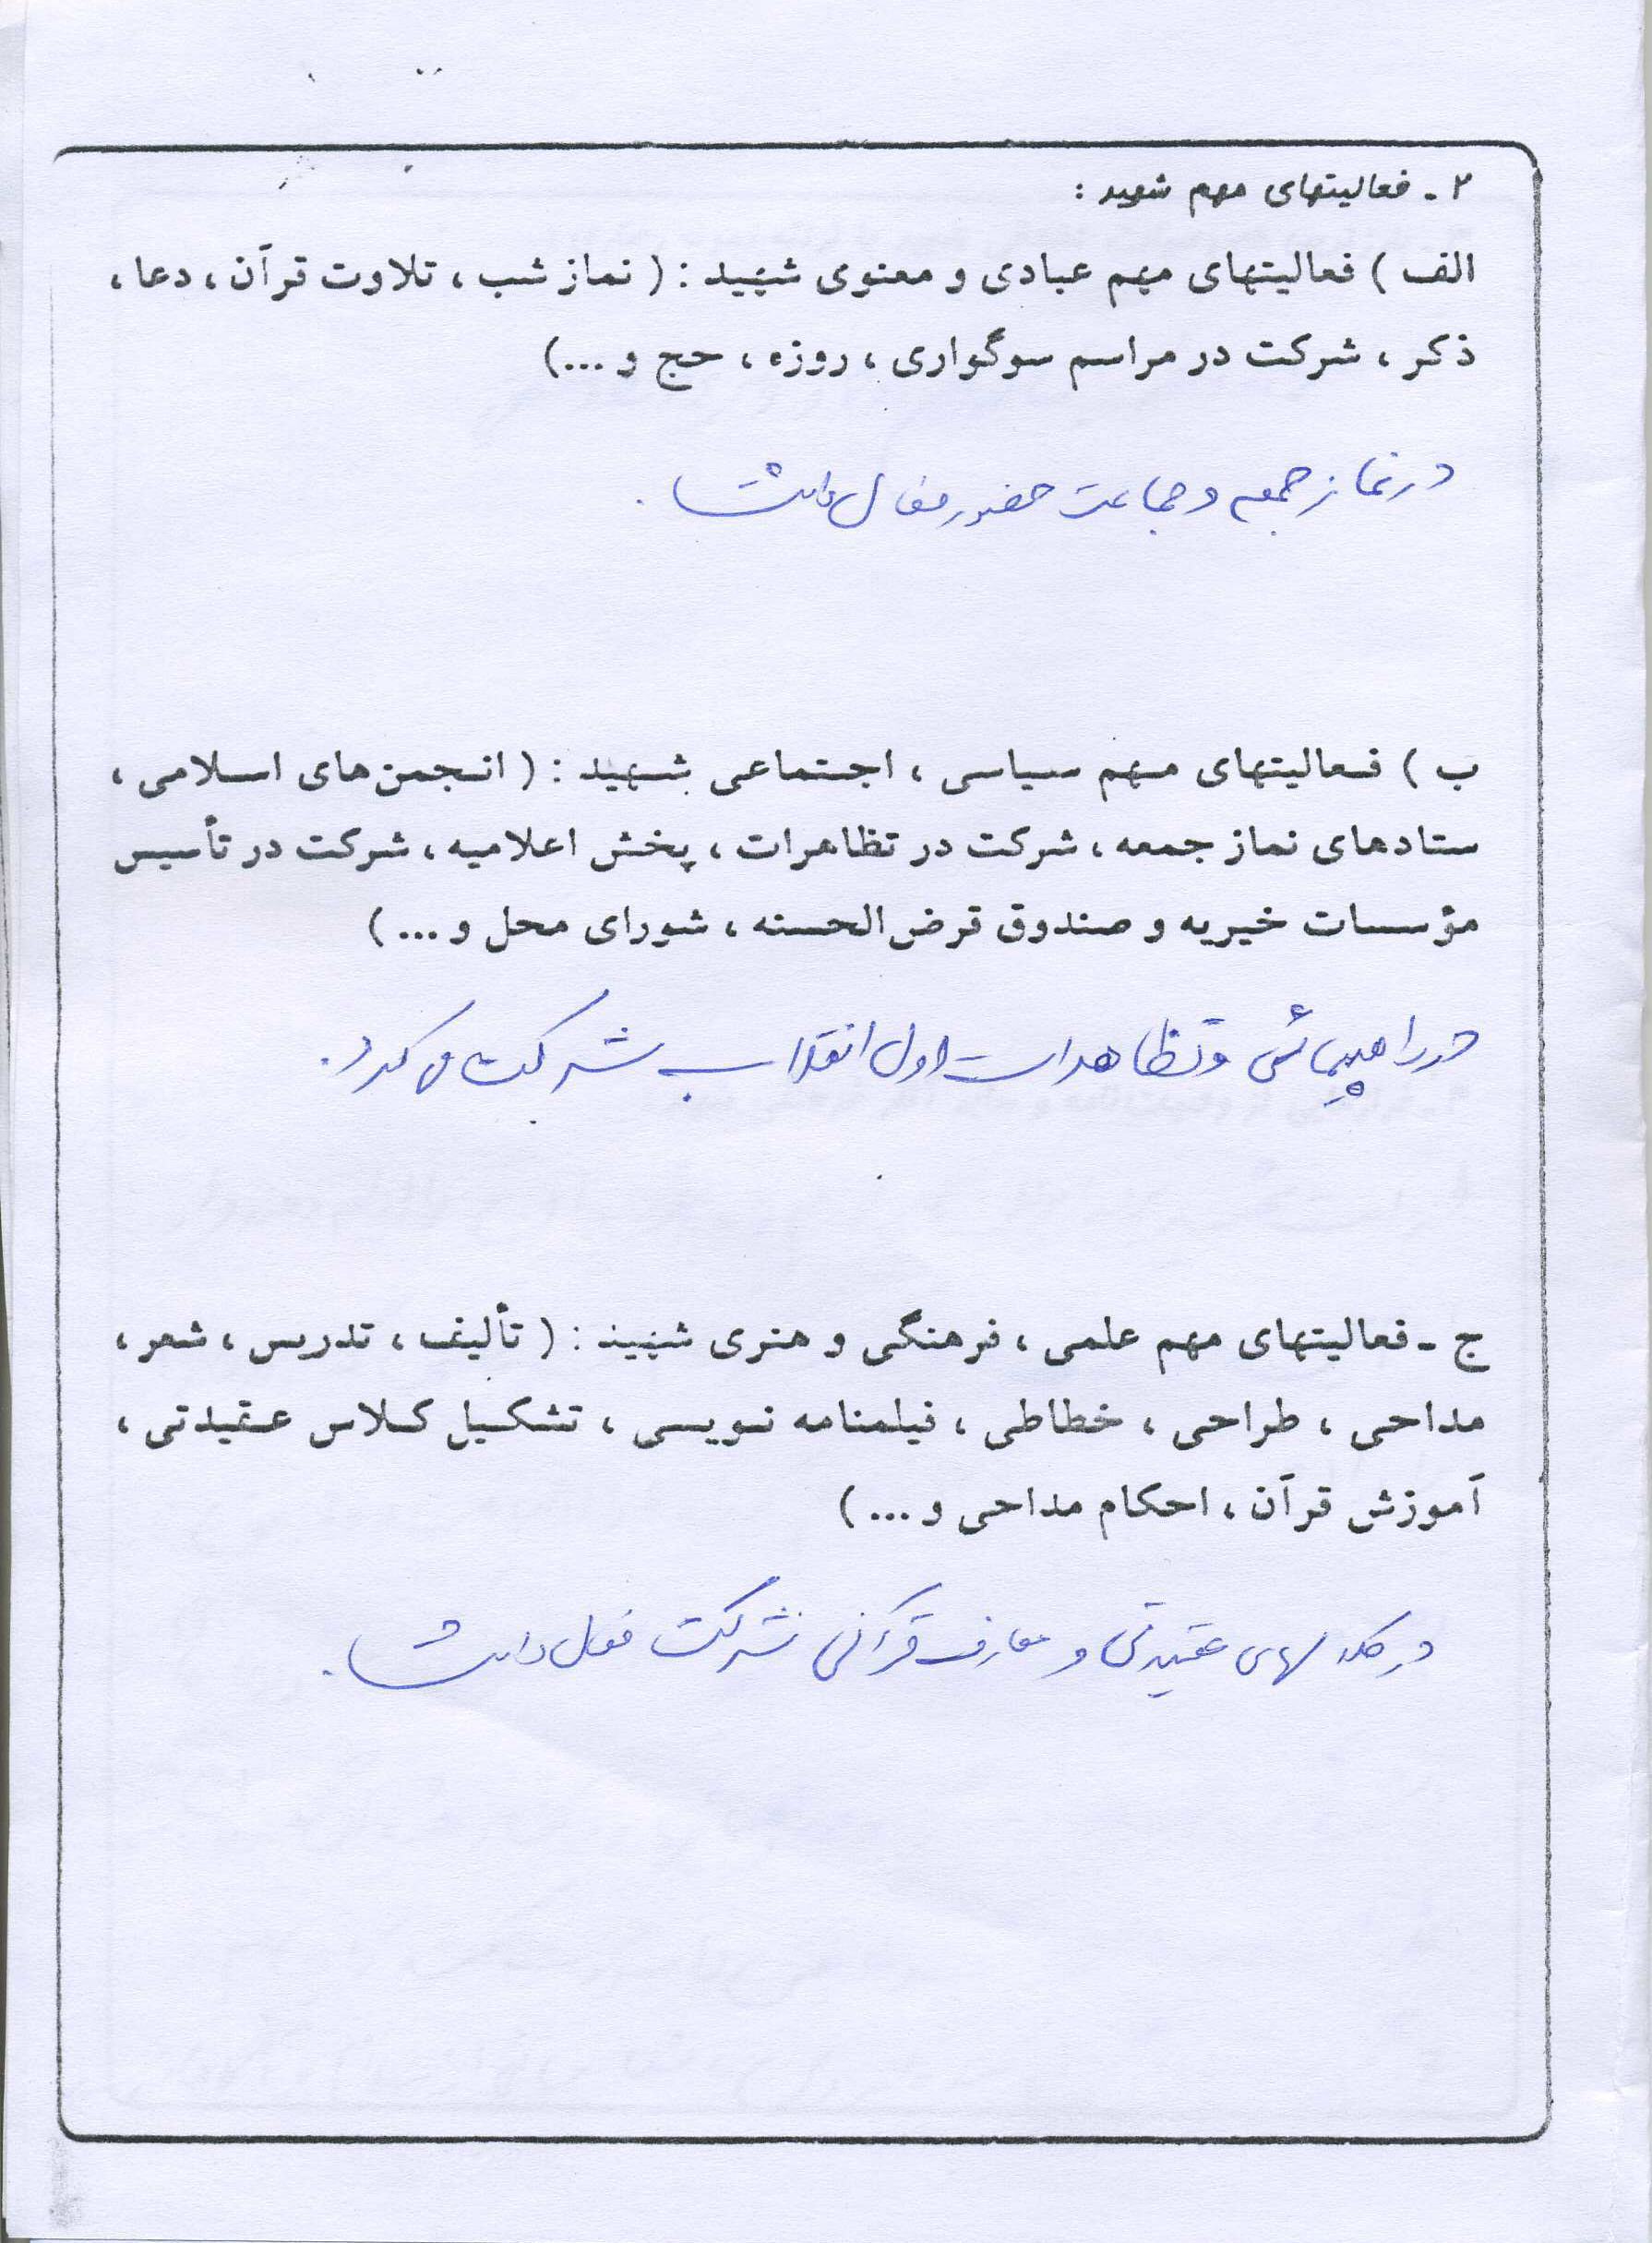 ۲ - فعالیتهای مهم شهید :
الف ) فعالیتهای مهم عبادی و معنوی شهید : ( نماز شب ، تلاوت قرآن ، دعا ،
ذکر ، شرکت در مراسم سوگواری ، روزه ، حج و ...)
در نماز جمعه و جماعت حضور فعال داشت .
ب ) فعالیتهای مهم سیاسی ، اجتماعی شهید : ( انجمن‌های اسلامی ،
ستادهای نماز جمعه ، شرکت در تظاهرات ، پخش اعلامیه ، شرکت در تأسیس
مؤسسات خیریه و صندوق قرض‌الحسنه ، شورای محل و ... )
در راهپیمائی و تظاهرات اول انقلاب شرکت می کرد .
ج - فعالیتهای مهم علمی ، فرهنگی و هنری شهید : ( تألیف ، تدریس ، شعر ،
مداحی ، طراحی ، خطاطی ، فیلمنامه نویسی ، تشکیل کلاس عقیدتی ،
آموزش قرآن ، احکام مداحی و ... )
در کلاسهای عقیدتی و معارف قرآنی شرکت فعال داشت .